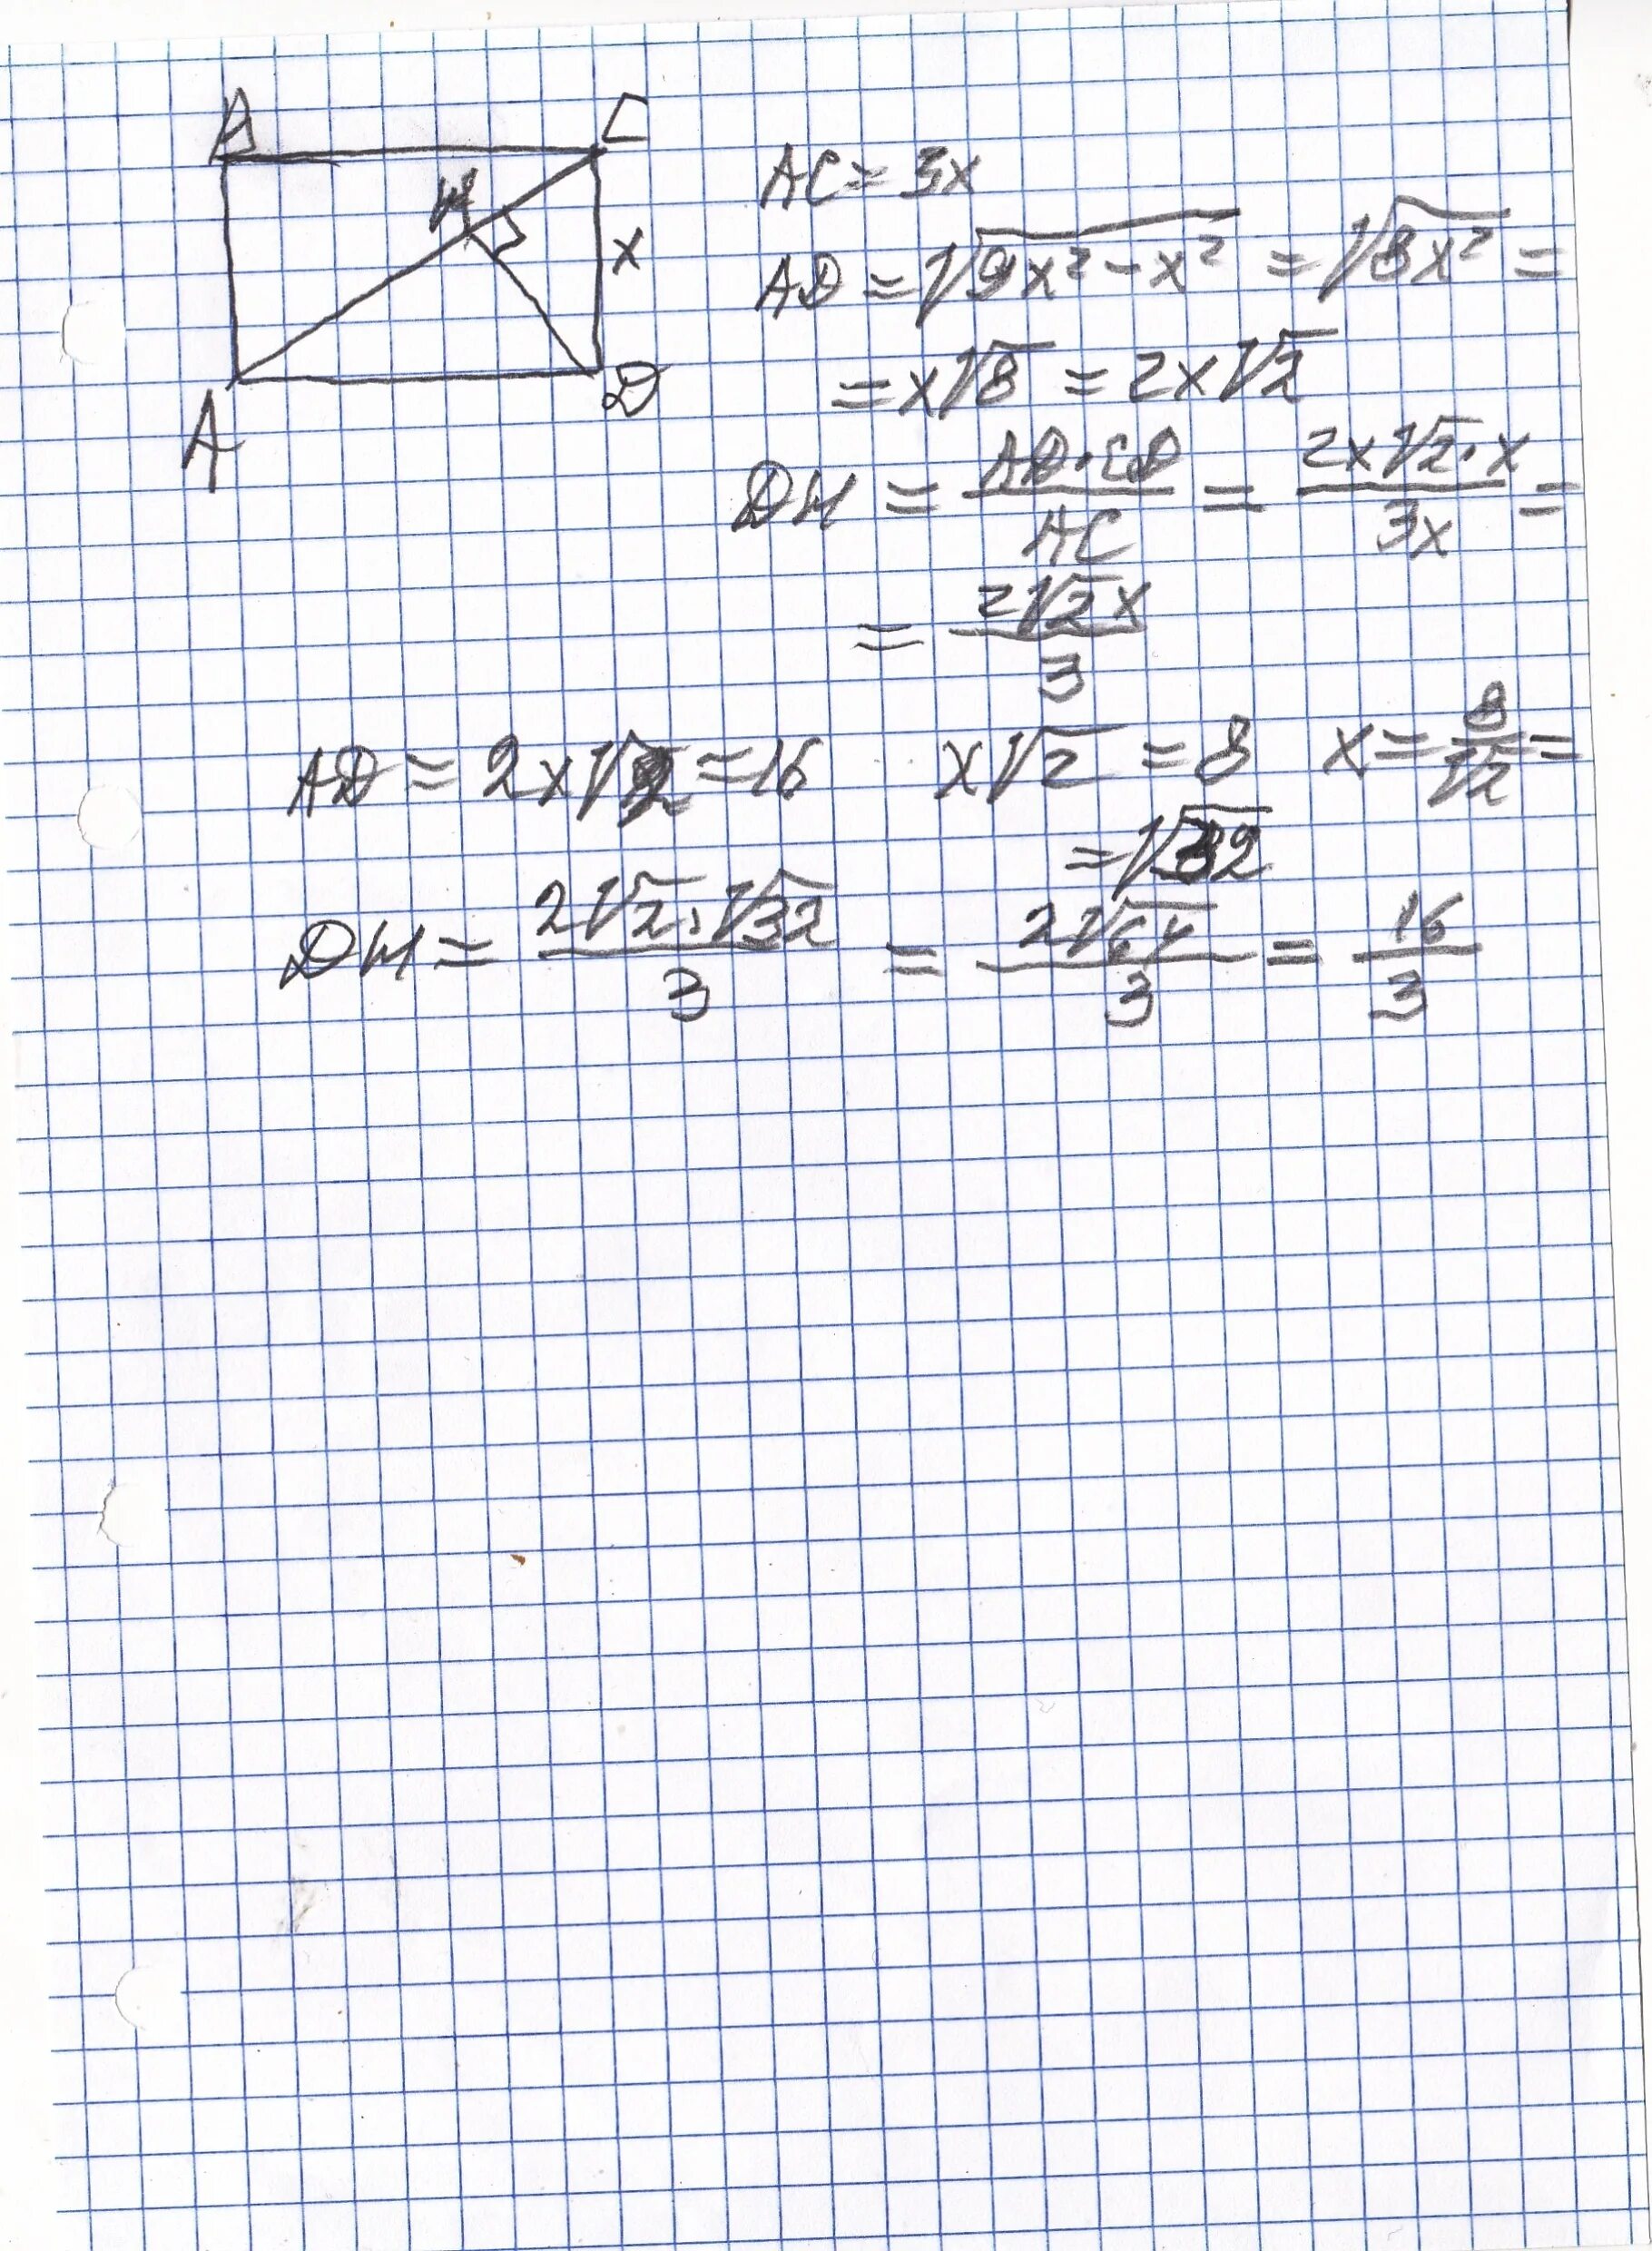 B
C
H
x
A
D
AC = 3x
AD = √(9x² - x²) = √(8x²) =
= x√8 = 2x√2
DH = (AD·CD)/(AC) = (2x√2·x)/(3x) =
= (2√2x)/3
AD = 2x√2 = 16 x√2 = 8 x = 8/√2 =
= √32
DH = (2√2·√32)/3 = (2√64)/3 = 16/3